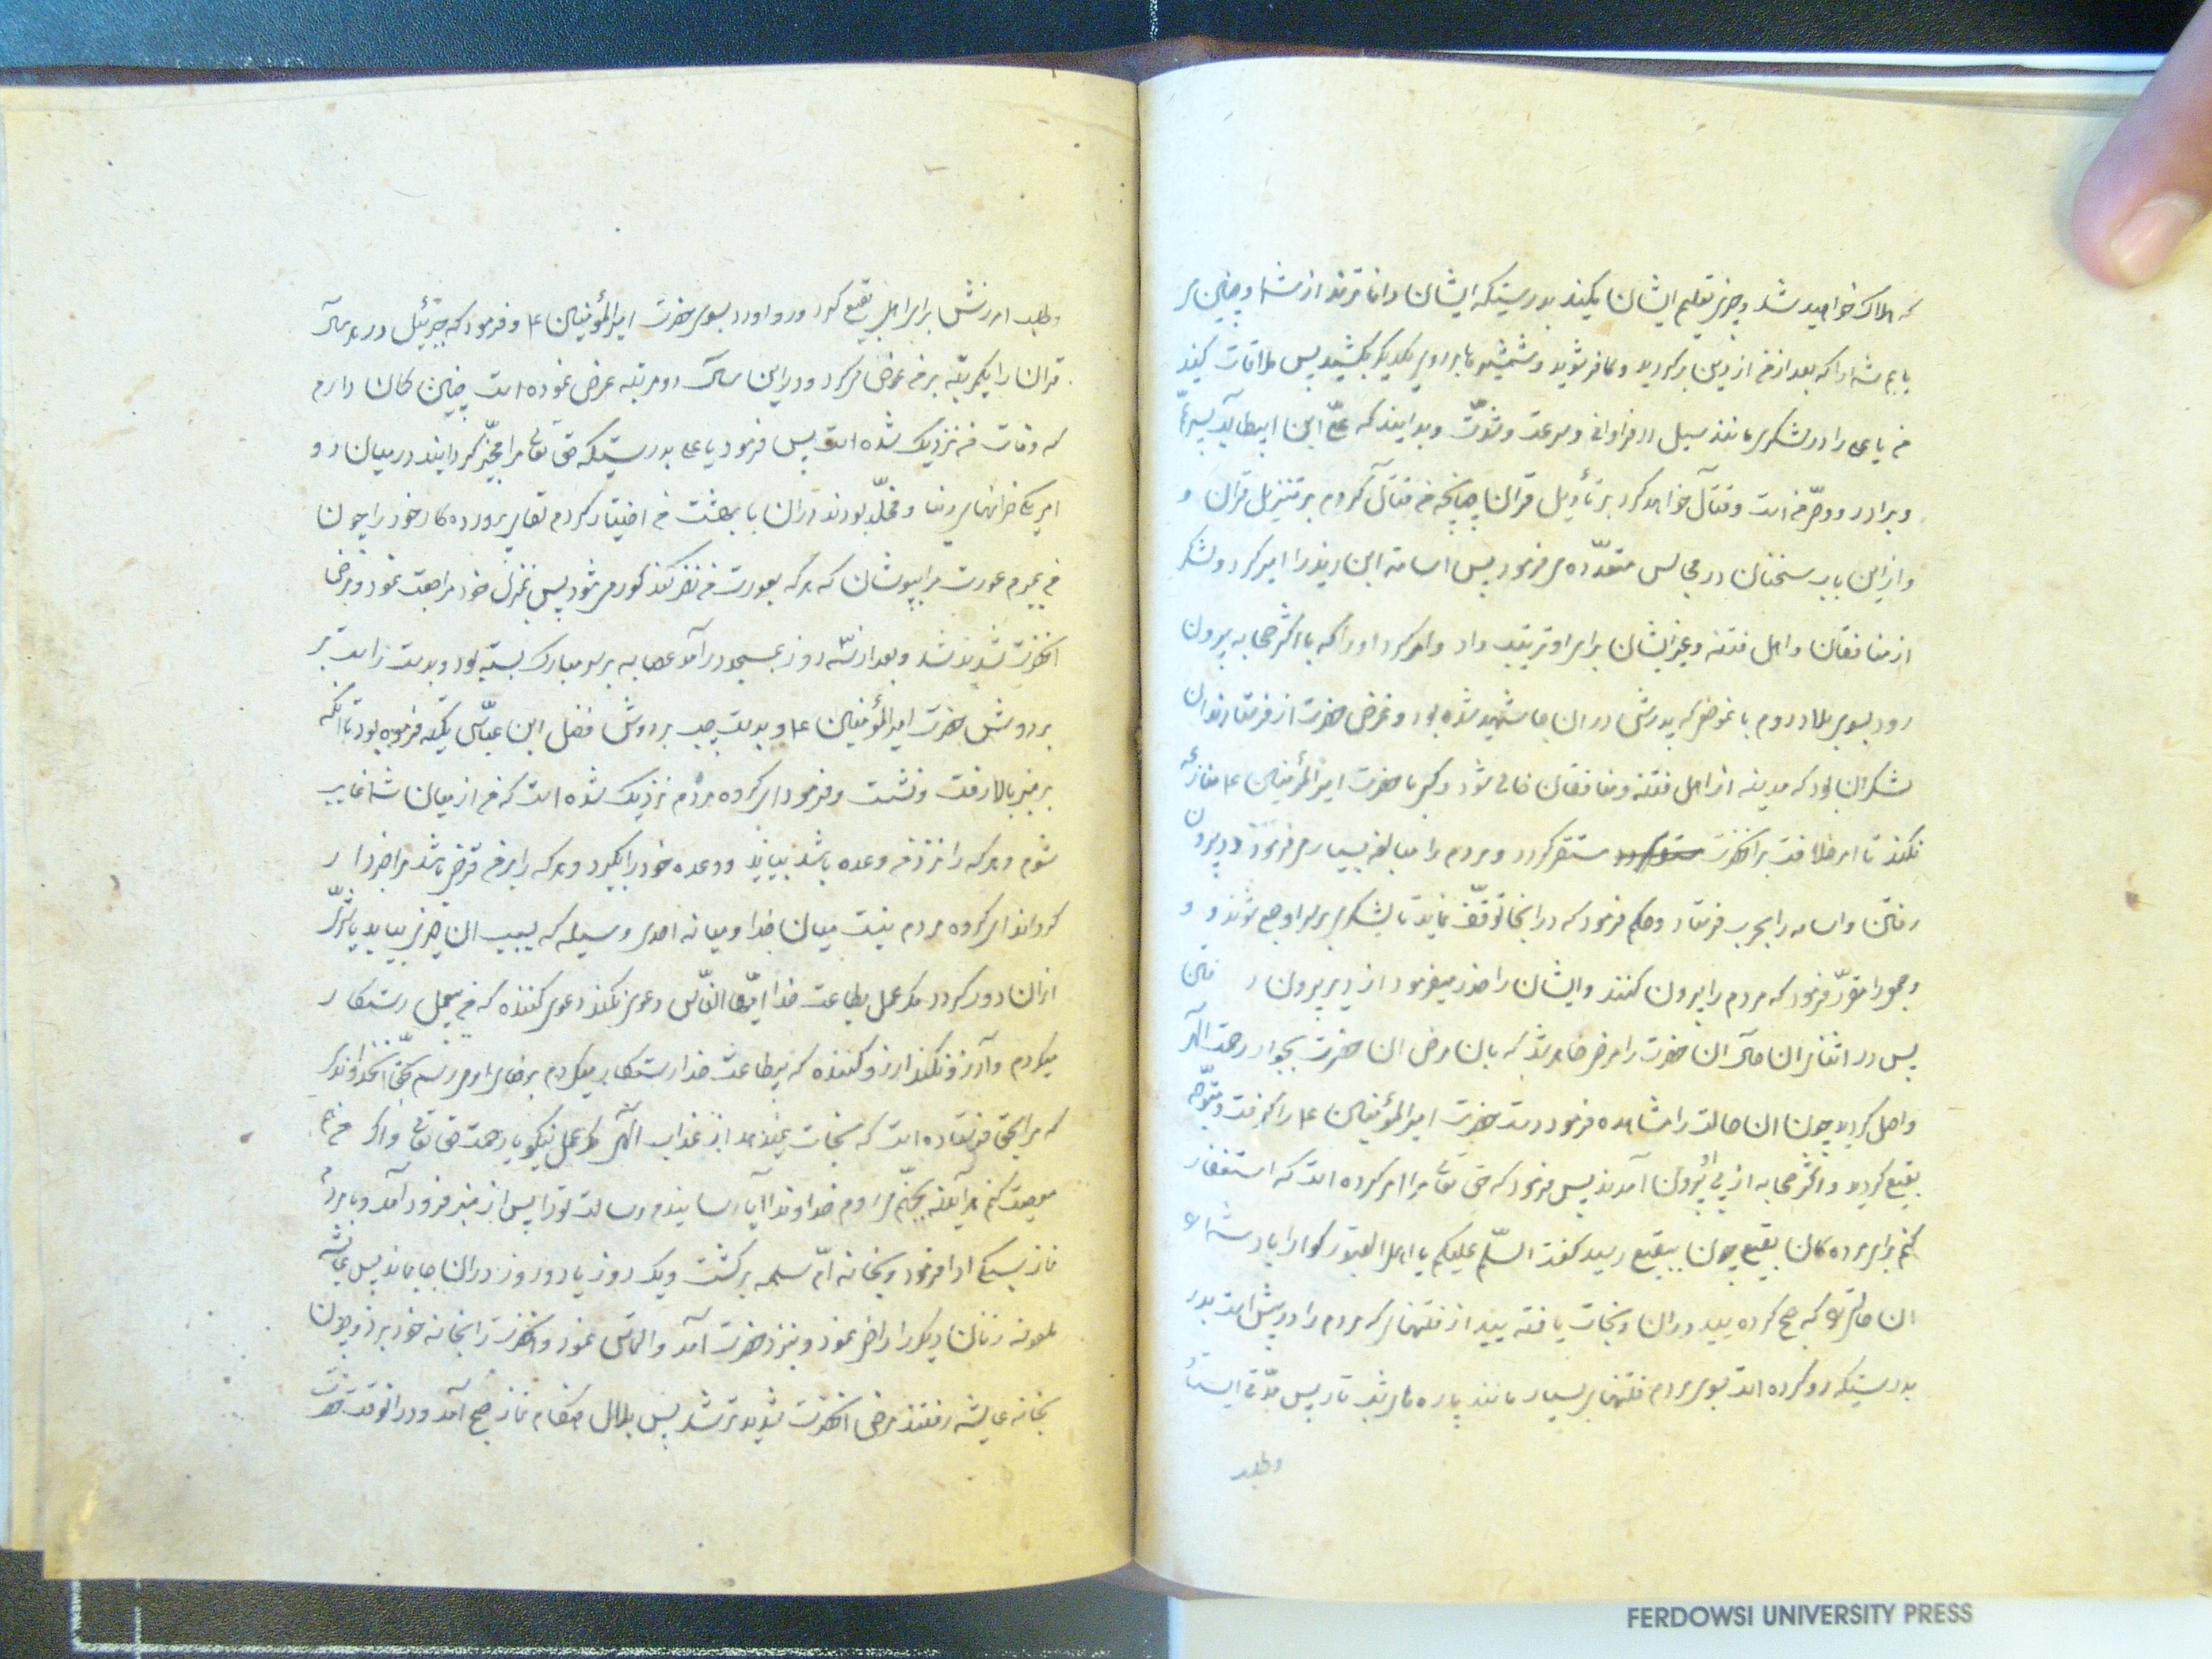 که هلاک خواهید شد و چیزی تعلیم ایشان مکنید بدرستیکه ایشان داناترند از شما و چنین
یابم شما را که بعد از من از دین برگردید و کافر شوید و شمشیرها بر روی یکدیگر بکشید پس ملاقات کنید
من یا علی را در لشکری مانند سیل در فراوانی و سرعت و شدّت و بدانید که علیّ ابن ابیطالب پسر عمّ
و برادر و وصیّ من است و قتال خواهد کرد بر تأویل قران چنانچه من قتال کردم بر تنزیل قران و
و از این باب سخنان در مجالس متعدّده می فرمود پس اسامة ابن زید را امیر کرد و لشکر
از منافقان و اهل فتنه و غیر ایشان برای او ترتیب داد و امر کرد او را که با اکثر صحابه بیرون
رود بسوی بلاد روم با نموضعی که پدرش در ان جا شهید شده بود و غرض حضرت از فرستادن ان
لشکر ان بود که مدینه از اهل فتنه و منافقان خالی شود و کسی با حضرت امیر المؤمنین ع منازعه
نکند تا امر خلافت بر انحضرت مستقر گردد و مردم را مبالغه بسیار می فرمود در بیرون
رفتن و اسامه را بجرف فرستاد و حکم فرمود که در انجا توقّف نماید تا لشکر بر سر او جمع شوند و
و جمعی را مقرّر فرمود که مردم را بیرون کنند و ایشان را حذر میفرمود از دیر بیرون رفتن
پس در اثنای ان حال ان حضرت را مرضی طاهر شد که بان مرض ان حضرت بجوار رحمت الهی
واصل گردید چون ان حالت را مشاهده فرمود دست حضرت امیر المؤمنین ع را گرفت و متوجّه
بقیع گردید و اکثر صحابه از پی او بیرون آمدند پس فرمود که حق تعالی مرا امر کرده است که استغفار
کنم برای مرده کان بقیع چون ببقیع رسید گفت السّلم علیکم یا اهل القبور گوارا باد شما را
ان حالتی که صبح کرده یید در ان و نجات یافته یید از فتنهائی که مردم را در پیش است بدر
بدرستیکه رو کرده است بسوی مردم فتنهای بسیار مانند پاره های شب تار پس مدّتی ایستاد
وطلب
وطلب امرزش برای اهل بقیع کرد و رو اورد بسوی حضرت امیر المؤمنین ع و فرمود که جبرئیل در هر سال
قران را یکمرتبه بر من عرض می کرد و در این سال دو مرتبه عرض نموده است چنین کمان دارم
که وفات من نزدیک شده است پس فرمود یا علی بدرستیکه حق تعالی مرا مخیّر گردانید در میان
خزانهای دنیا و مخلّد بودن در ان یا بهشت من اختیار کردم لقای پرورده کار خود را چون
من بمیرم عورت مرا بپوشان که هر که بعورت من نظر کند کور می شود پس بمنزل خود مراجعت نمود و مرض
انحضرت شدید شد و بعد از سه روز بمسجد در آمد عصابه بر سر مبارک بسته بود و بدست راست بر
بر دوش حضرت امیر المؤمنین ع و بدست چپ بر دوش فضل ابن عبّاس تکیه فرموده بود تا انکه
بر منبر بالا رفت و نشست و فرمود ای کروه مردم نزدیک شده است که من از میان شما غایب
شوم و هر که را نزد من وعده باشد بیاید و وعده خود را بگیرد و هر که را بر من قرض باشد مرا خبردار
کرداند ای کروه مردم نیست میان خدا و میانه احدی وسیله که بسبب ان چیزی بیابد یا شرّی
از ان دور کردد مگر عمل بطاعت خدا ایّها النّاس دعوی نکند دعوی کننده که من بی عمل رستکار
میکردم و آرزو نکند ارزو کننده که بی طاعت خدا رستکار میکردم برضای او میرسم بحق انخداوندی
که مرا بحق فرستاده است که نجات نمیدهد از عذاب الهی مگر عمل نیکو با رحمت حق تعالی و اگر من
معصیت کنم هر آینه بجهنّم میروم خداوندا آیا رسانیدم رسالت تو را پس از منبر فرود آمد و با مردم
نماز سبکی ادا فرمود و بخانه امّ سلمه برگشت و یک روز یا دو روز در ان جا ماند پس عایشه
ملعونه زنان دیگر را راضی نمود و بنزد حضرت آمد و التماس نمود و انحضرت را بخانه خود برد و چون
بخانه عایشه رفتند مرض انحضرت شدیدتر شد پس بلال هنکام نماز صبح آمد و در انوقت حضرت
FERDOWSI UNIVERSITY PRESS